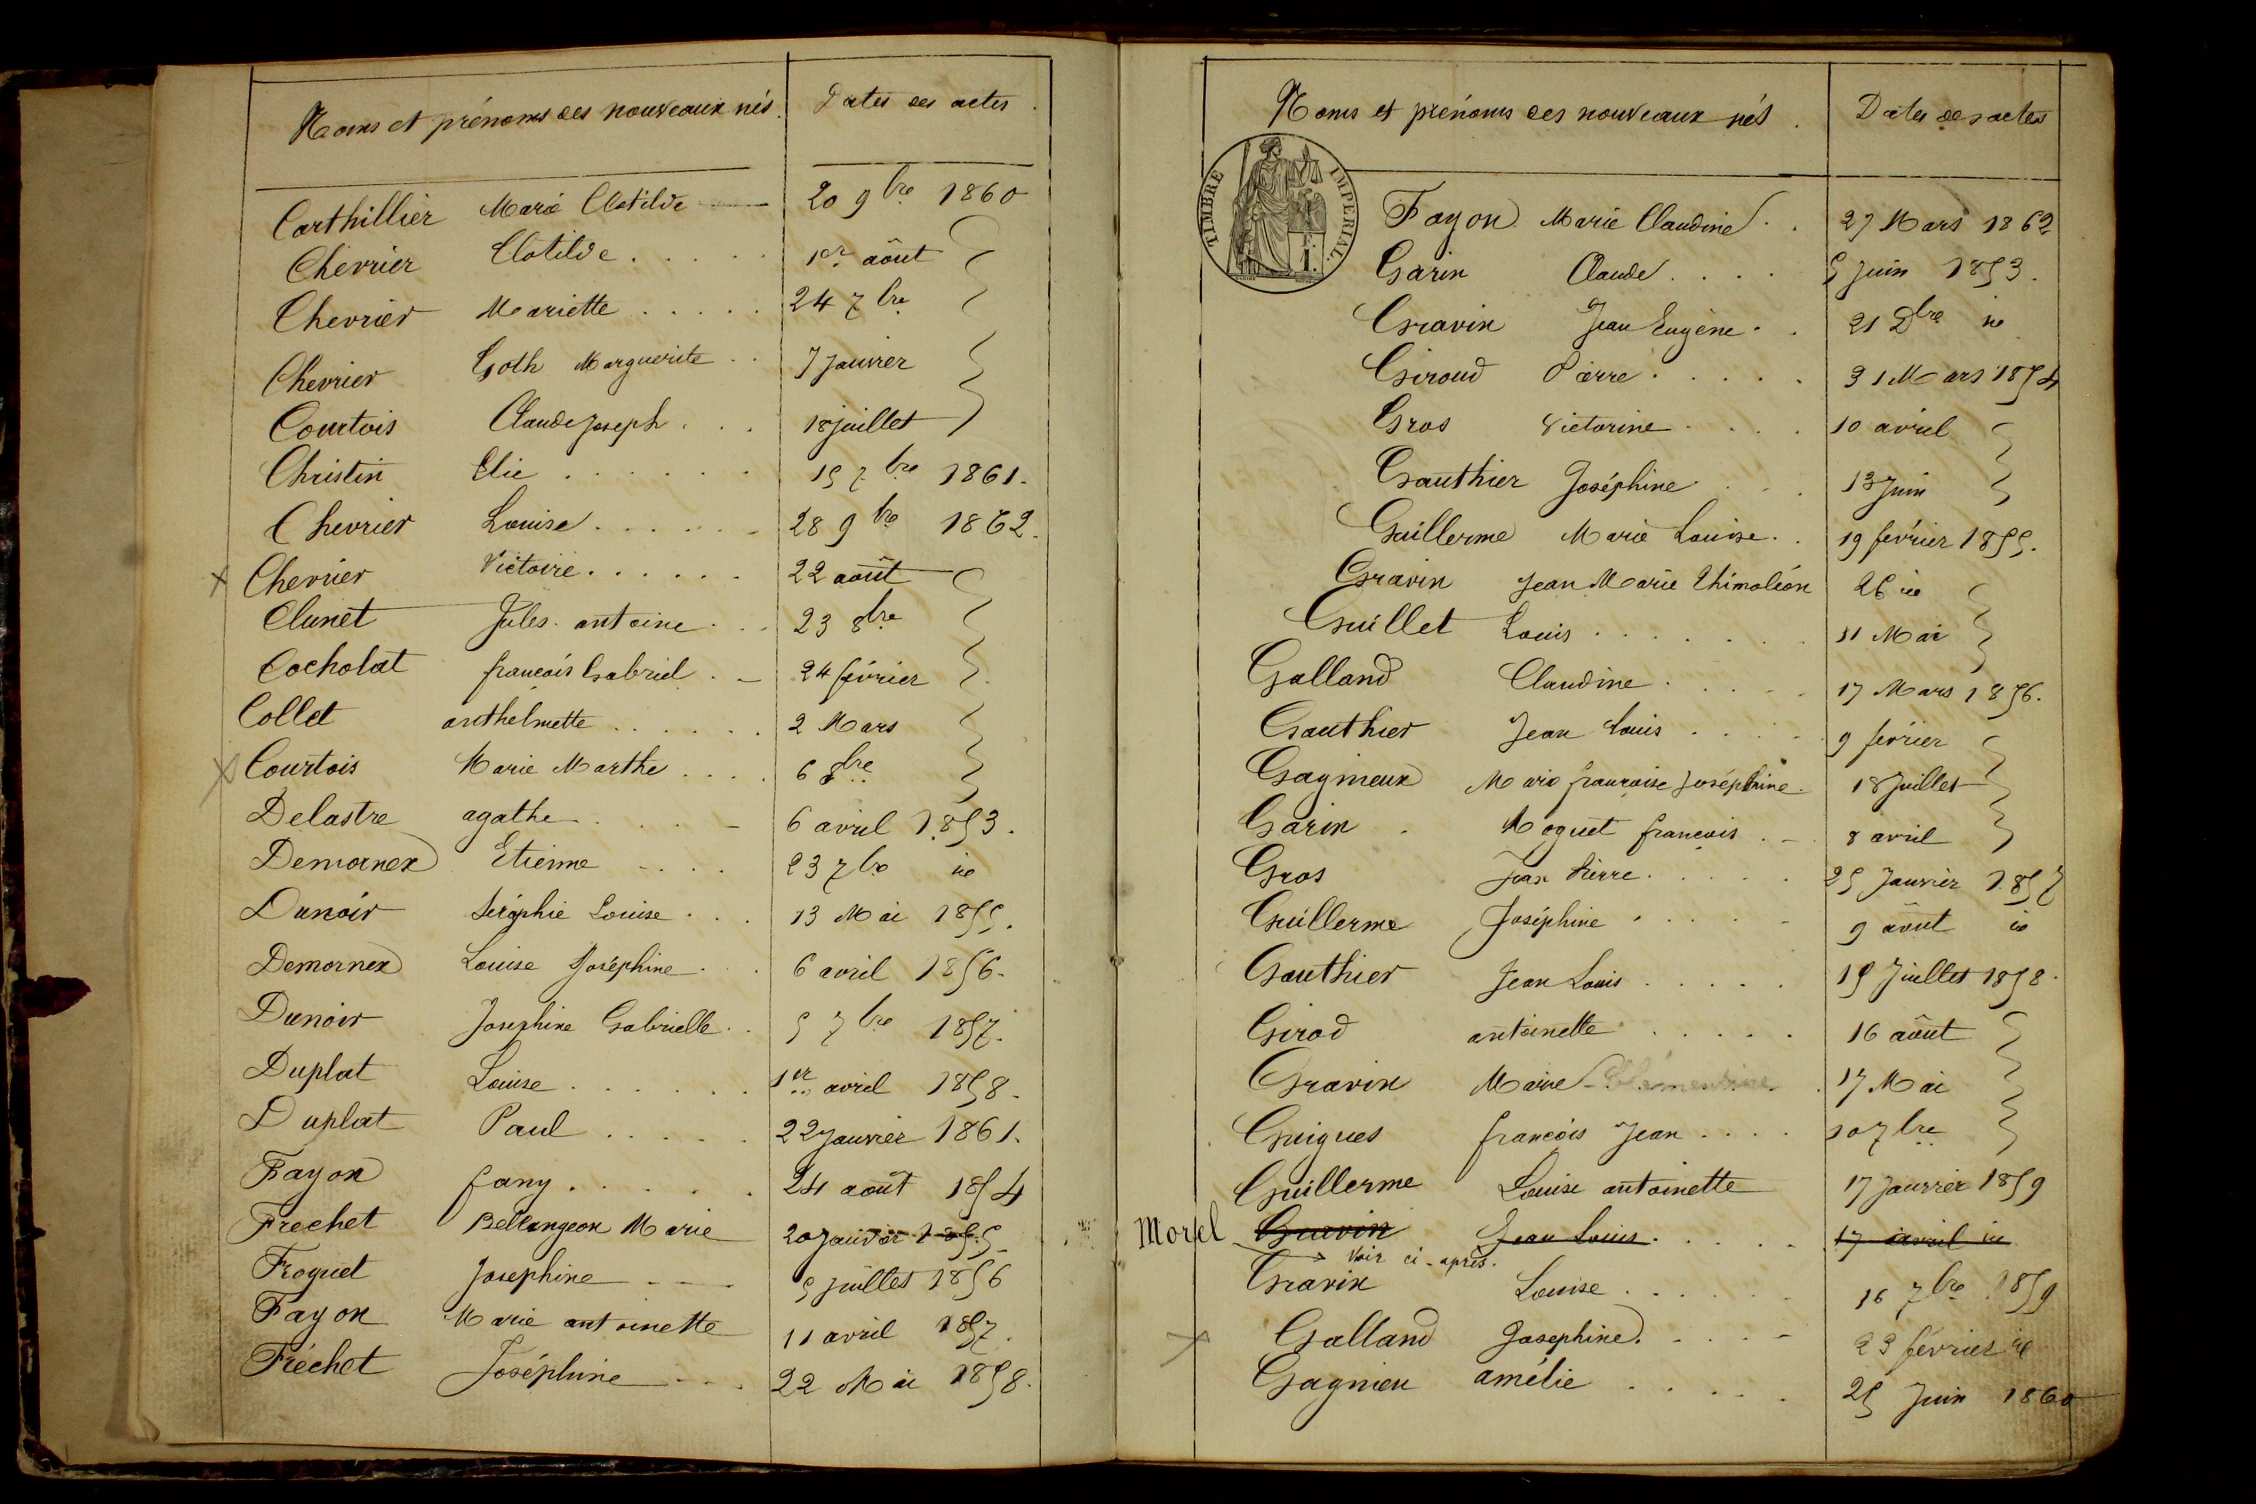 Noms et prénoms des nouveaux nés. Dates des actes.
Carthillier Marie Clotilde 20 9bre 1860
Chevrier Clotilde..... 1er août
Chevrier Mariette..... 24 7bre
Chevrier Goth Marguerite.. 7 Janvier
Courtois Claude Joseph... 18 juillet
Christin Elie....... 15 7bre 1861.
Chevrier Louise...... 28 9bre 1862.
x Chevrier Victoire...... 22 août
Clunet Jules. antoine.. 23 8bre
Cocholat francois Gabriel.. 24 février
Collet anthelmette...... 2 Mars
x Courtois Marie Marthe.... 6 8bre
Delastre agathe.... 6 avril 1853.
Demornex Etienne.... 23 7bre id
Dunoir Séraphie Louise... 13 Mai 1855.
Demornex Louise Joséphine.. 6 avril 1856.
Dunoir Josephine Gabrielle.. 5 7bre 1857.
Duplat Louise....... 1er avril 1858.
Duplat Paul..... 22 Janvier 1861.
Fayon fany...... 24 août 1854
Frechet Bellangeon Marie 20 Janvier 1855
Froquet Josephine 5 juillet 1856
Fayon Marie antoinette 11 avril 1857.
Fréchet Joséphine 22 Mai 1858.
Noms et prénoms des nouveaux nés. Dates des actes
TIMBRE IMPERIAL.
Fayon Marie Claudine.. 27 Mars 1862
Garin Claude.... 5 Juin 1853.
Gravin Jean Eugène.. 21 Dbre id
Giroud Pierre..... 31 Mars 1854
Gros Victorine.... 10 avril
Gauthier Joséphine... 13 Juin
Guillerme Marie Louise.. 19 février 1855.
Gravin Jean Marie Thimoléon 26 id
Guillet Louis....... 31 Mai
Galland Claudine..... 17 Mars 1856.
Gauthier Jean Louis.... 9 février
Gagnieux Marie françoise Joséphine. 18 Juillet
Garin. Noguet francois.. 8 avril
Gros Jean Pierre..... 25 Janvier 1857
Guillerme Joséphine.... 9 août id
Gauthier Jean Louis..... 15 Juillet 1858.
Girod antoinette..... 16 août
Gravin Marie Clémentine. 17 Mai
Guigues francois Jean.... 30 7bre
Guillerme Louise antoinette 17 Janvier 1859
Morel Gravin Jean Louis..... 17 avril id
→ Voir ci-après.
Gravin Louise...... 16 7bre 1859
x Galland Josephine.... 23 février id
Gagnieu amélie.... 25 Juin 1860